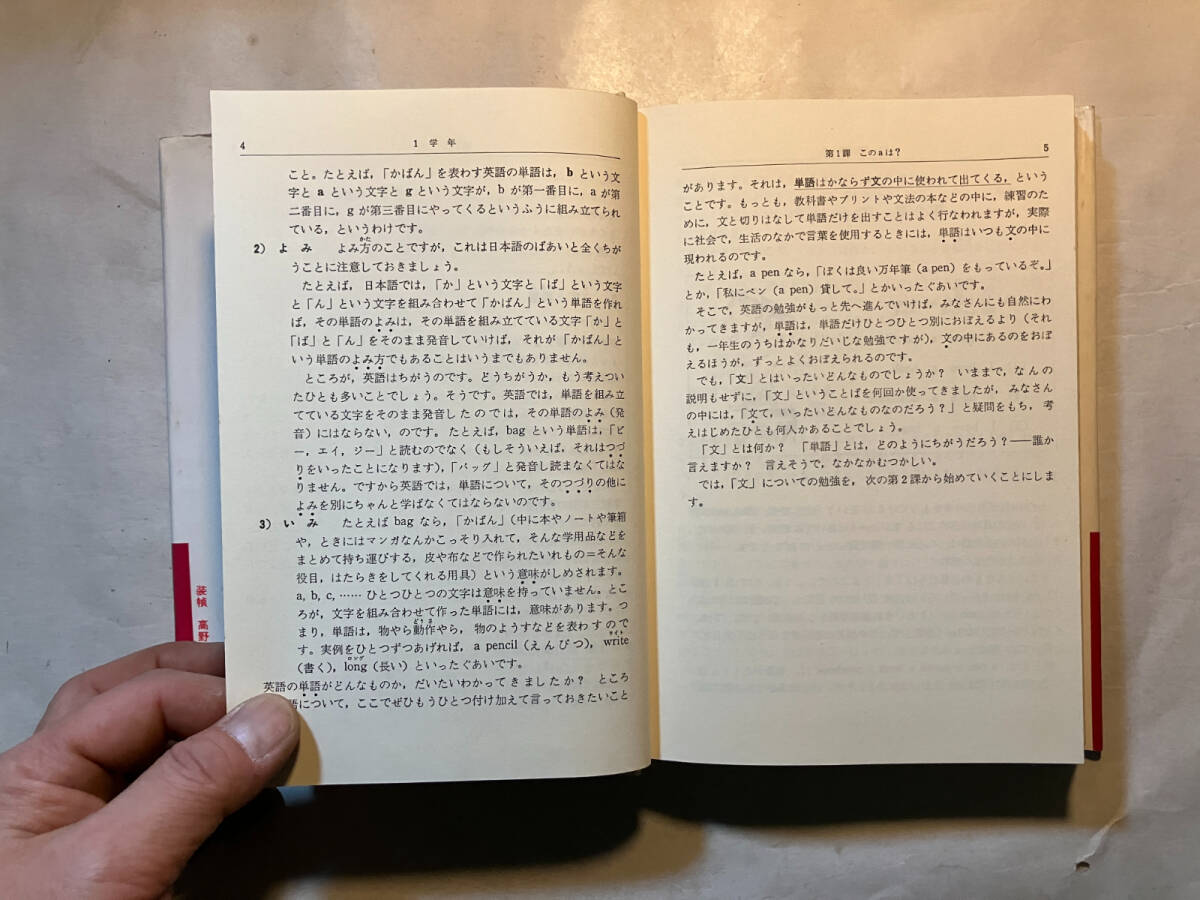 4
1 学 年
こと。たとえば，「かばん」を表わす英語の単語は，b という文
字と a という文字と g という文字が，b が第一番目に，a が第
二番目に，g が第三番目にやってくるというふうに組み立てられ
ている，というわけです。
2) よ み よみ方のことですが，これは日本語のばあいと全くちが
かた
うことに注意しておきましょう。
たとえば，日本語では，「か」という文字と「ば」という文字
と「ん」という文字を組み合わせて「かばん」という単語を作れ
ば，その単語のよみは，その単語を組み立てている文字「か」と
「ば」と「ん」をそのまま発音していけば，それが「かばん」と
いう単語のよみ方でもあることはいうまでもありません。
ところが，英語はちがうのです。どうちがうか，もう考えつい
たひとも多いことでしょう。そうです。英語では，単語を組み立
てている文字をそのまま発音したのでは，その単語のよみ（発
音）にはならない，のです。たとえば，bag という単語は，「ビ
ー，エイ，ジー」と読むのでなく（もしそういえば，それはつづ
りをいったことになります），「バッグ」と発音し読まなくてはな
りません。ですから英語では，単語について，そのつづりの他に
よみを別にちゃんと学ばなくてはならないのです。
3) い み たとえば bag なら，「かばん」（中に本やノートや筆箱
や，ときにはマンガなんかこっそり入れて，そんな学用品などを
まとめて持ち運びする，皮や布などで作られたいれもの＝そんな
役目，はたらきをしてくれる用具）という意味がしめされます。
a, b, c, …… ひとつひとつの文字は意味を持っていません。とこ
ろが，文字を組み合わせて作った単語には，意味があります。つ
まり，単語は，物やら動作やら，物のようすなどを表わすので
どうさ
す。実例をひとつずつあげれば，a pencil（えんぴつ），write
ライト
（書く），long（長い）といったぐあいです。
ロング
英語の単語がどんなものか，だいたいわかってきましたか？ ところ
語について，ここでぜひもうひとつ付け加えて言っておきたいこと
装幀 高野
第1課 このaは？
5
があります。それは，単語はかならず文の中に使われて出てくる，という
ことです。もっとも，教科書やプリントや文法の本などの中に，練習のた
めに，文と切りはなして単語だけを出すことはよく行なわれますが，実際
に社会で，生活のなかで言葉を使用するときには，単語はいつも文の中に
現われるのです。
たとえば，a pen なら，「ぼくは良い万年筆（a pen）をもっているぞ。」
とか，「私にペン（a pen）貸して。」とかいったぐあいです。
そこで，英語の勉強がもっと先へ進んでいけば，みなさんにも自然にわ
かってきますが，単語は，単語だけひとつひとつ別におぼえるより（それ
も，一年生のうちはかなりだいじな勉強ですが），文の中にあるのをおぼ
えるほうが，ずっとよくおぼえられるのです。
でも，「文」とはいったいどんなものでしょうか？ いままで，なんの
説明もせずに，「文」ということばを何回か使ってきましたが，みなさん
の中には，「文て，いったいどんなものなのだろう？」と疑問をもち，考
えはじめたひとも何人かあることでしょう。
「文」とは何か？ 「単語」とは，どのようにちがうだろう？――誰か
言えますか？ 言えそうで，なかなかむつかしい。
では，「文」についての勉強を，次の第2課から始めていくことにしま
す。